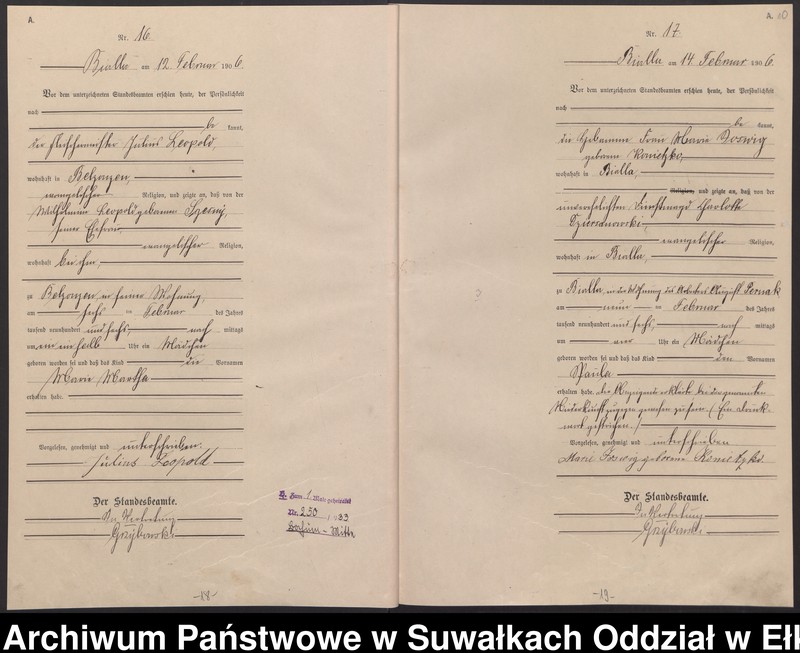 A.
Nr. 16
Bialla am 12 Februar 1906
Vor dem unterzeichneten Standesbeamten erschien heute, der Persönlichkeit
nach
be kannt,
der Fleischermeister Julius Leopold,
wohnhaft in Belzonzen,
evangelischer Religion, und zeigte an, daß von der
Wilhelmine Leopold geborenen Szesny,
seiner Ehefrau,
evangelischer Religion,
wohnhaft bei ihm,
zu Belzonzen, in seiner Wohnung,
am sechs ten Februar des Jahres
tausend neunhundert und sechs, nach mittags
um ein Uhr ein Mädchen
geboren worden sei und daß das Kind die Vornamen
Marie Martha
erhalten habe.
Vorgelesen, genehmigt und unterschrieben.
Julius Leopold
Der Standesbeamte.
In Vertretung
Grzybowski
Zum 1. Mal geheiratet
Nr. 250 1933
Bochum - Mitte
-18-
A. 10
Nr. 17
Bialla am 14 Februar 1906
Vor dem unterzeichneten Standesbeamten erschien heute, der Persönlichkeit
nach
be kannt,
die Hebamme Frau Marie
geborene Konietzko,
wohnhaft in Bialla,
Religion, und zeigte an, daß von der
unverehelichten Dienstmagd Charlotte
Dziersanowski,
evangelischer Religion,
wohnhaft in Bialla,
zu Bialla, in der Wohnung des Arbeiters August
am neun ten Februar des Jahres
tausend neunhundert und sechs, nach mittags
um Uhr ein Mädchen
geboren worden sei und daß das Kind den Vornamen
Paula
erhalten habe. die Anzeigende erklärte bei der genannten
Niederkunft zugegen gewesen zu sein. (Ein Druck-
wort gestrichen.)
Vorgelesen, genehmigt und unterschrieben
Marie geborene Konietzko.
Der Standesbeamte.
In Vertretung
Grzybowski
-19-
Archiwum Państwowe w Suwałkach Oddział w Ełk